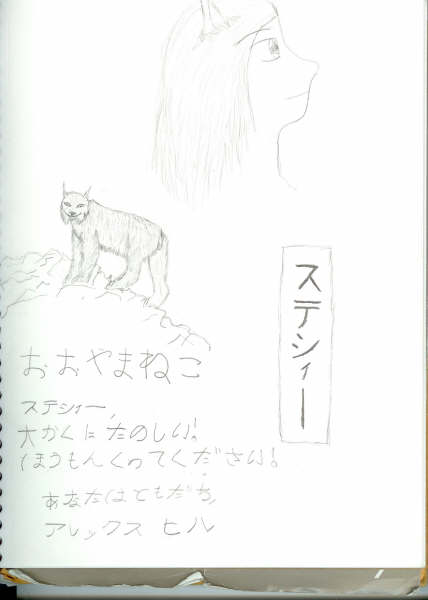 ステシィー
おおやまねこ
ステシィー,
大かくに たのしい!
ほうもんくってください!
あなたはともだち,
アレックス ヒル